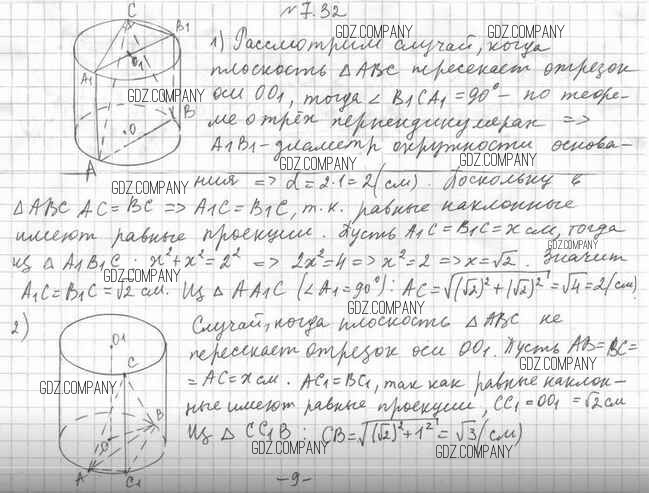 №7.32
1) Рассмотрим случай, когда
плоскость △ABC пересекает отрезок
оси OO₁, тогда ∠B₁CA₁ = 90° - по теоре-
ме о трёх перпендикулярах =>
A₁B₁ - диаметр окружности основа-
ния => d = 2·1 = 2(см). Поскольку в
△ABC AC = BC => A₁C = B₁C, т.к. равные наклонные
имеют равные проекции. Пусть A₁C = B₁C = x см, тогда
из △A₁B₁C: x² + x² = 2² => 2x² = 4 => x² = 2 => x = √2. Значит
A₁C = B₁C = √2 см. Из △AA₁C (∠A₁ = 90°): AC = √((√2)² + (√2)²) = √4 = 2(см)
2) Случай, когда плоскость △ABC не
пересекает отрезок оси OO₁. Пусть AB = BC =
= AC = x см. AC₁ = BC₁, так как равные наклон-
ные имеют равные проекции, CC₁ = OO₁ = √2 см
Из △CC₁B: CB = √((√2)² + 1²) = √3 (см)
-9-
C
B₁
A₁
O₁
B
O
A
O₁
C
B
O
A
C₁
GDZ.COMPANY
GDZ.COMPANY
GDZ.COMPANY
GDZ.COMPANY
GDZ.COMPANY
GDZ.COMPANY
GDZ.COMPANY
GDZ.COMPANY
GDZ.COMPANY
GDZ.COMPANY
GDZ.COMPANY
GDZ.COMPANY
GDZ.COMPANY
GDZ.COMPANY